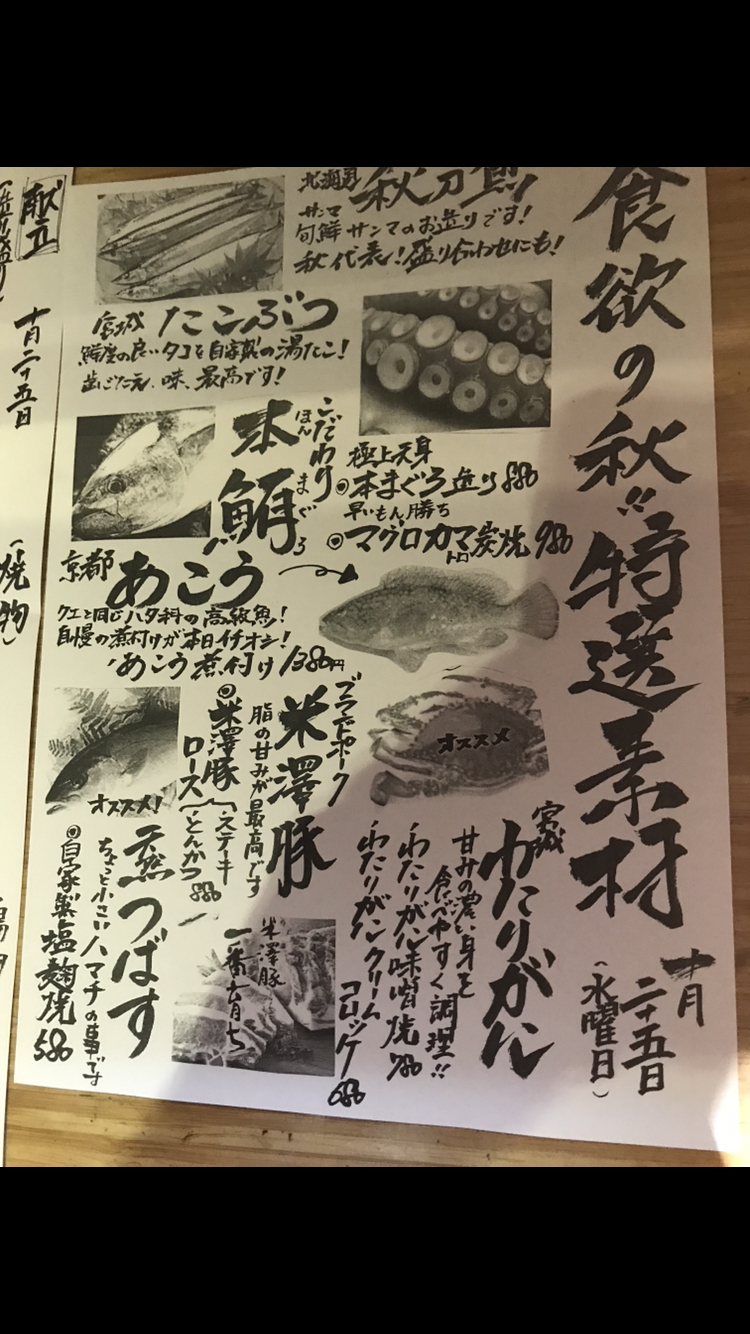 食欲の秋!! 特選素材
十月
二十五日
(水曜日)
北海道 秋刀魚
サンマ
旬鮮サンマのお造りです!
秋代表!盛り合わせにも!
宮城 たこぶつ
鮮度の良いタコを自家製の湯たこ!
歯ごたえ、味、最高です!
こだわり
本鮪
ほんまぐろ
極上天身
◎本まぐろ造り 880
早いもん勝ち
◎マグロカマトロ炭焼 980
京都 あこう
クエと同じハタ科の高級魚!
自慢の煮付けが本日イチオシ!
あこう煮付け 1380円
オススメ
宮城
わたりがに
甘みの濃い身を
食べやすく調理!!
わたりがに味噌焼 780
わたりがにクリームコロッケ 680
ブランドポーク
米澤豚
脂の甘みが最高です
◎米澤豚
ロース
ステーキ
とんかつ 880
米澤豚
一番育ち
オススメ!
つばす
ちょっと小さいハマチの事です
◎自家製塩麹焼 580
献立
十月二十五日
(焼物)